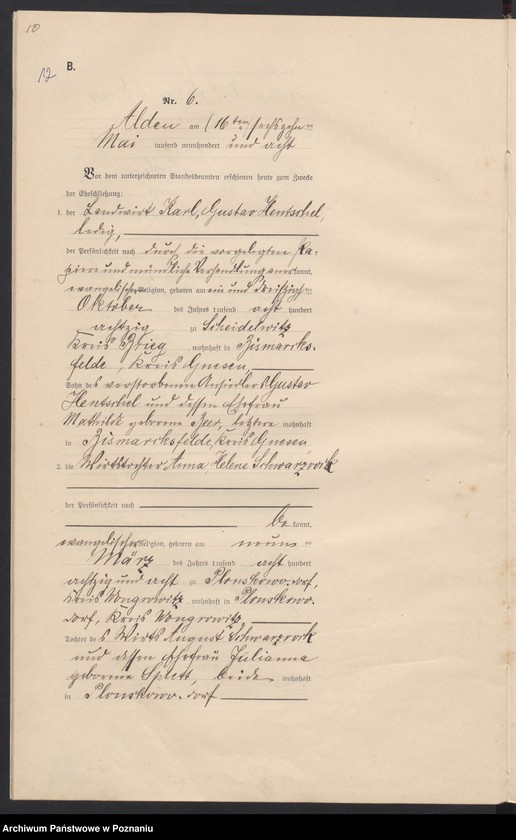 10
12
B.
Nr. 6.
Alden am (16ten) sechszehn ten
Mai tausend neunhundert und acht
Vor dem unterzeichneten Standesbeamten erschienen heute zum Zwecke
der Eheschließung:
1. der Landwirt Karl, Gustav Hentschel,
ledig,
der Persönlichkeit nach durch die vorgelegten Pa-
piere und mündliche Verhandlung anerkannt,
evangelischer Religion, geboren am ein und dreißigsten
Oktober des Jahres tausend acht hundert
achtzig zu Scheidelwitz
Kreis Brieg, wohnhaft in Bismarcks-
felde, Kreis Gnesen,
Sohn des verstorbenen Ansiedlers Gustav
Hentschel und dessen Ehefrau
Mathilde geborene Beer, letztere wohnhaft
in Bismarcksfelde, Kreis Gnesen
2. die Wirtstochter Anna, Helene Schwarzrock
der Persönlichkeit nach
be kannt,
evangelischer Religion, geboren am neun ten
März des Jahres tausend acht hundert
achtzig und acht zu Plonskowo-dorf,
Kreis Wongrowitz, wohnhaft in Plonskowo-
dorf, Kreis Wongrowitz
Tochter des Wirts August Schwarzrock
und dessen Ehefrau Julianna
geborene Splett, beide wohnhaft
in Plonskowo-dorf
Archiwum Państwowe w Poznaniu